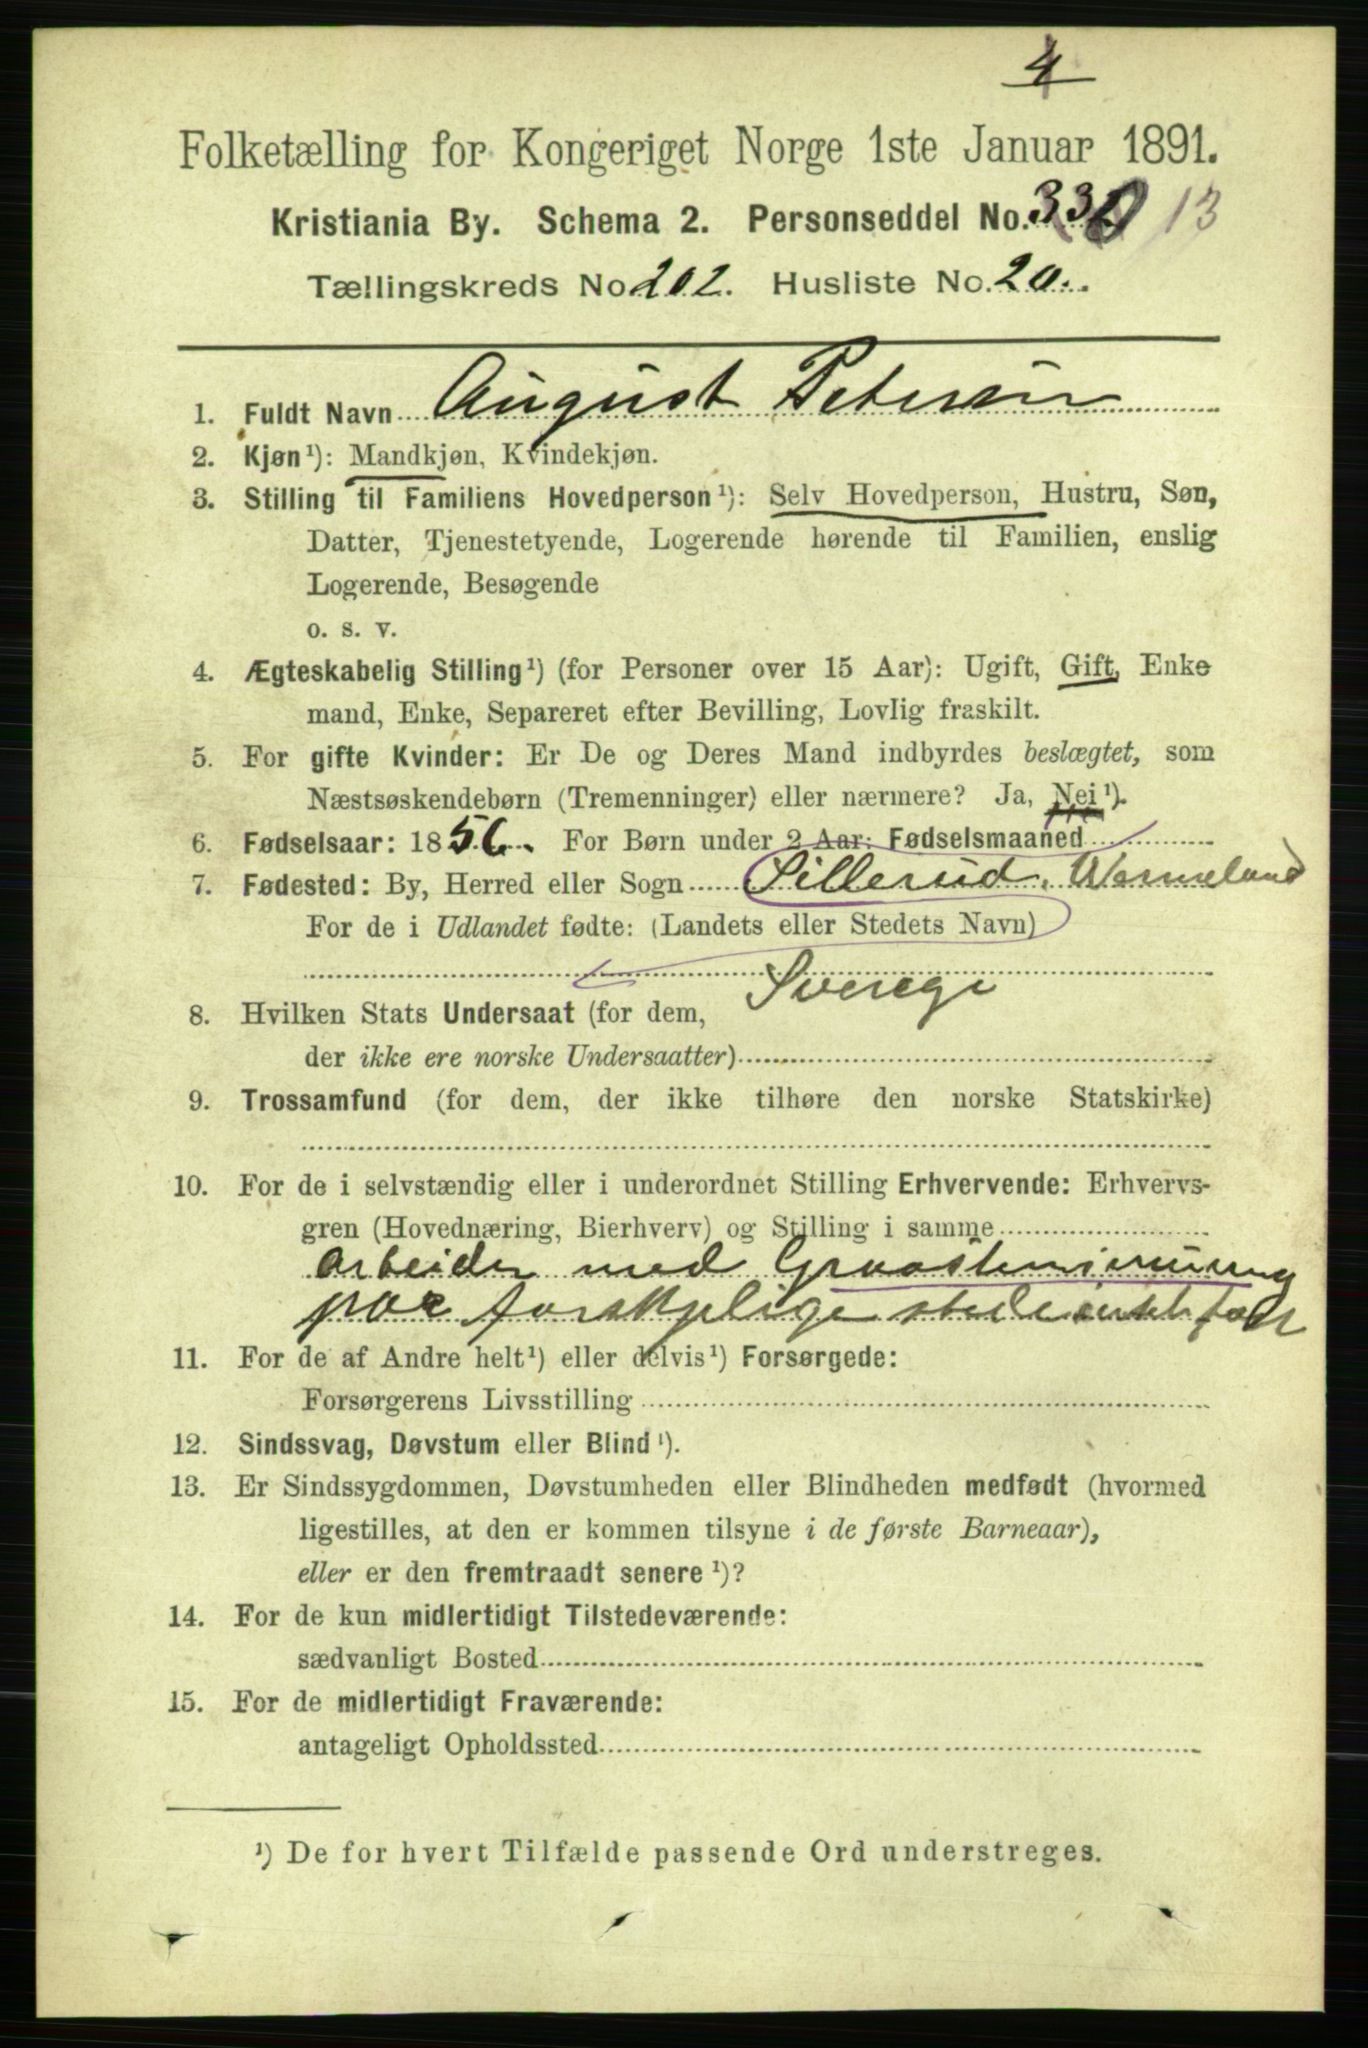 4
Folketælling for Kongeriget Norge 1ste Januar 1891.
Kristiania By. Schema 2. Personseddel No. 13
Tællingskreds No 202. Husliste No. 20.
1. Fuldt Navn August Petersen
2. Kjøn¹): Mandkjøn, Kvindekjøn.
3. Stilling til Familiens Hovedperson¹): Selv Hovedperson, Hustru, Søn,
Datter, Tjenestetyende, Logerende hørende til Familien, enslig
Logerende, Besøgende
o. s. v.
4. Ægteskabelig Stilling¹) (for Personer over 15 Aar): Ugift, Gift, Enke
mand, Enke, Separeret efter Bevilling, Lovlig fraskilt.
5. For gifte Kvinder: Er De og Deres Mand indbyrdes beslægtet, som
Næstsøskendebørn (Tremenninger) eller nærmere? Ja, Nei¹).
6. Fødselsaar: 1856. For Børn under 2 Aar: Fødselsmaaned
7. Fødested: By, Herred eller Sogn Sillerud, Wermeland
For de i Udlandet fødte: (Landets eller Stedets Navn)
Sverege
8. Hvilken Stats Undersaat (for dem,
der ikke ere norske Undersaatter)
9. Trossamfund (for dem, der ikke tilhøre den norske Statskirke)
10. For de i selvstændig eller i underordnet Stilling Erhvervende: Erhvervs-
gren (Hovednæring, Bierhverv) og Stilling i samme
arbeider med Graastensmuring
paa forskjelige stede
11. For de af Andre helt¹) eller delvis¹) Forsørgede:
Forsørgerens Livsstilling
12. Sindssvag, Døvstum eller Blind¹).
13. Er Sindssygdommen, Døvstumheden eller Blindheden medfødt (hvormed
ligestilles, at den er kommen tilsyne i de første Barneaar),
eller er den fremtraadt senere¹)?
14. For de kun midlertidigt Tilstedeværende:
sædvanligt Bosted
15. For de midlertidigt Fraværende:
antageligt Opholdssted
¹) De for hvert Tilfælde passende Ord understreges.